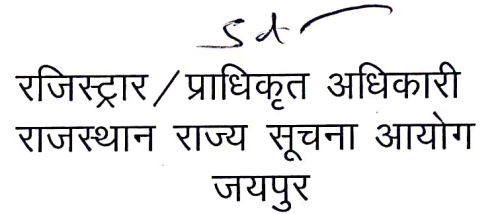 Sd/
रजिस्ट्रार/प्राधिकृत अधिकारी
राजस्थान राज्य सूचना आयोग
जयपुर